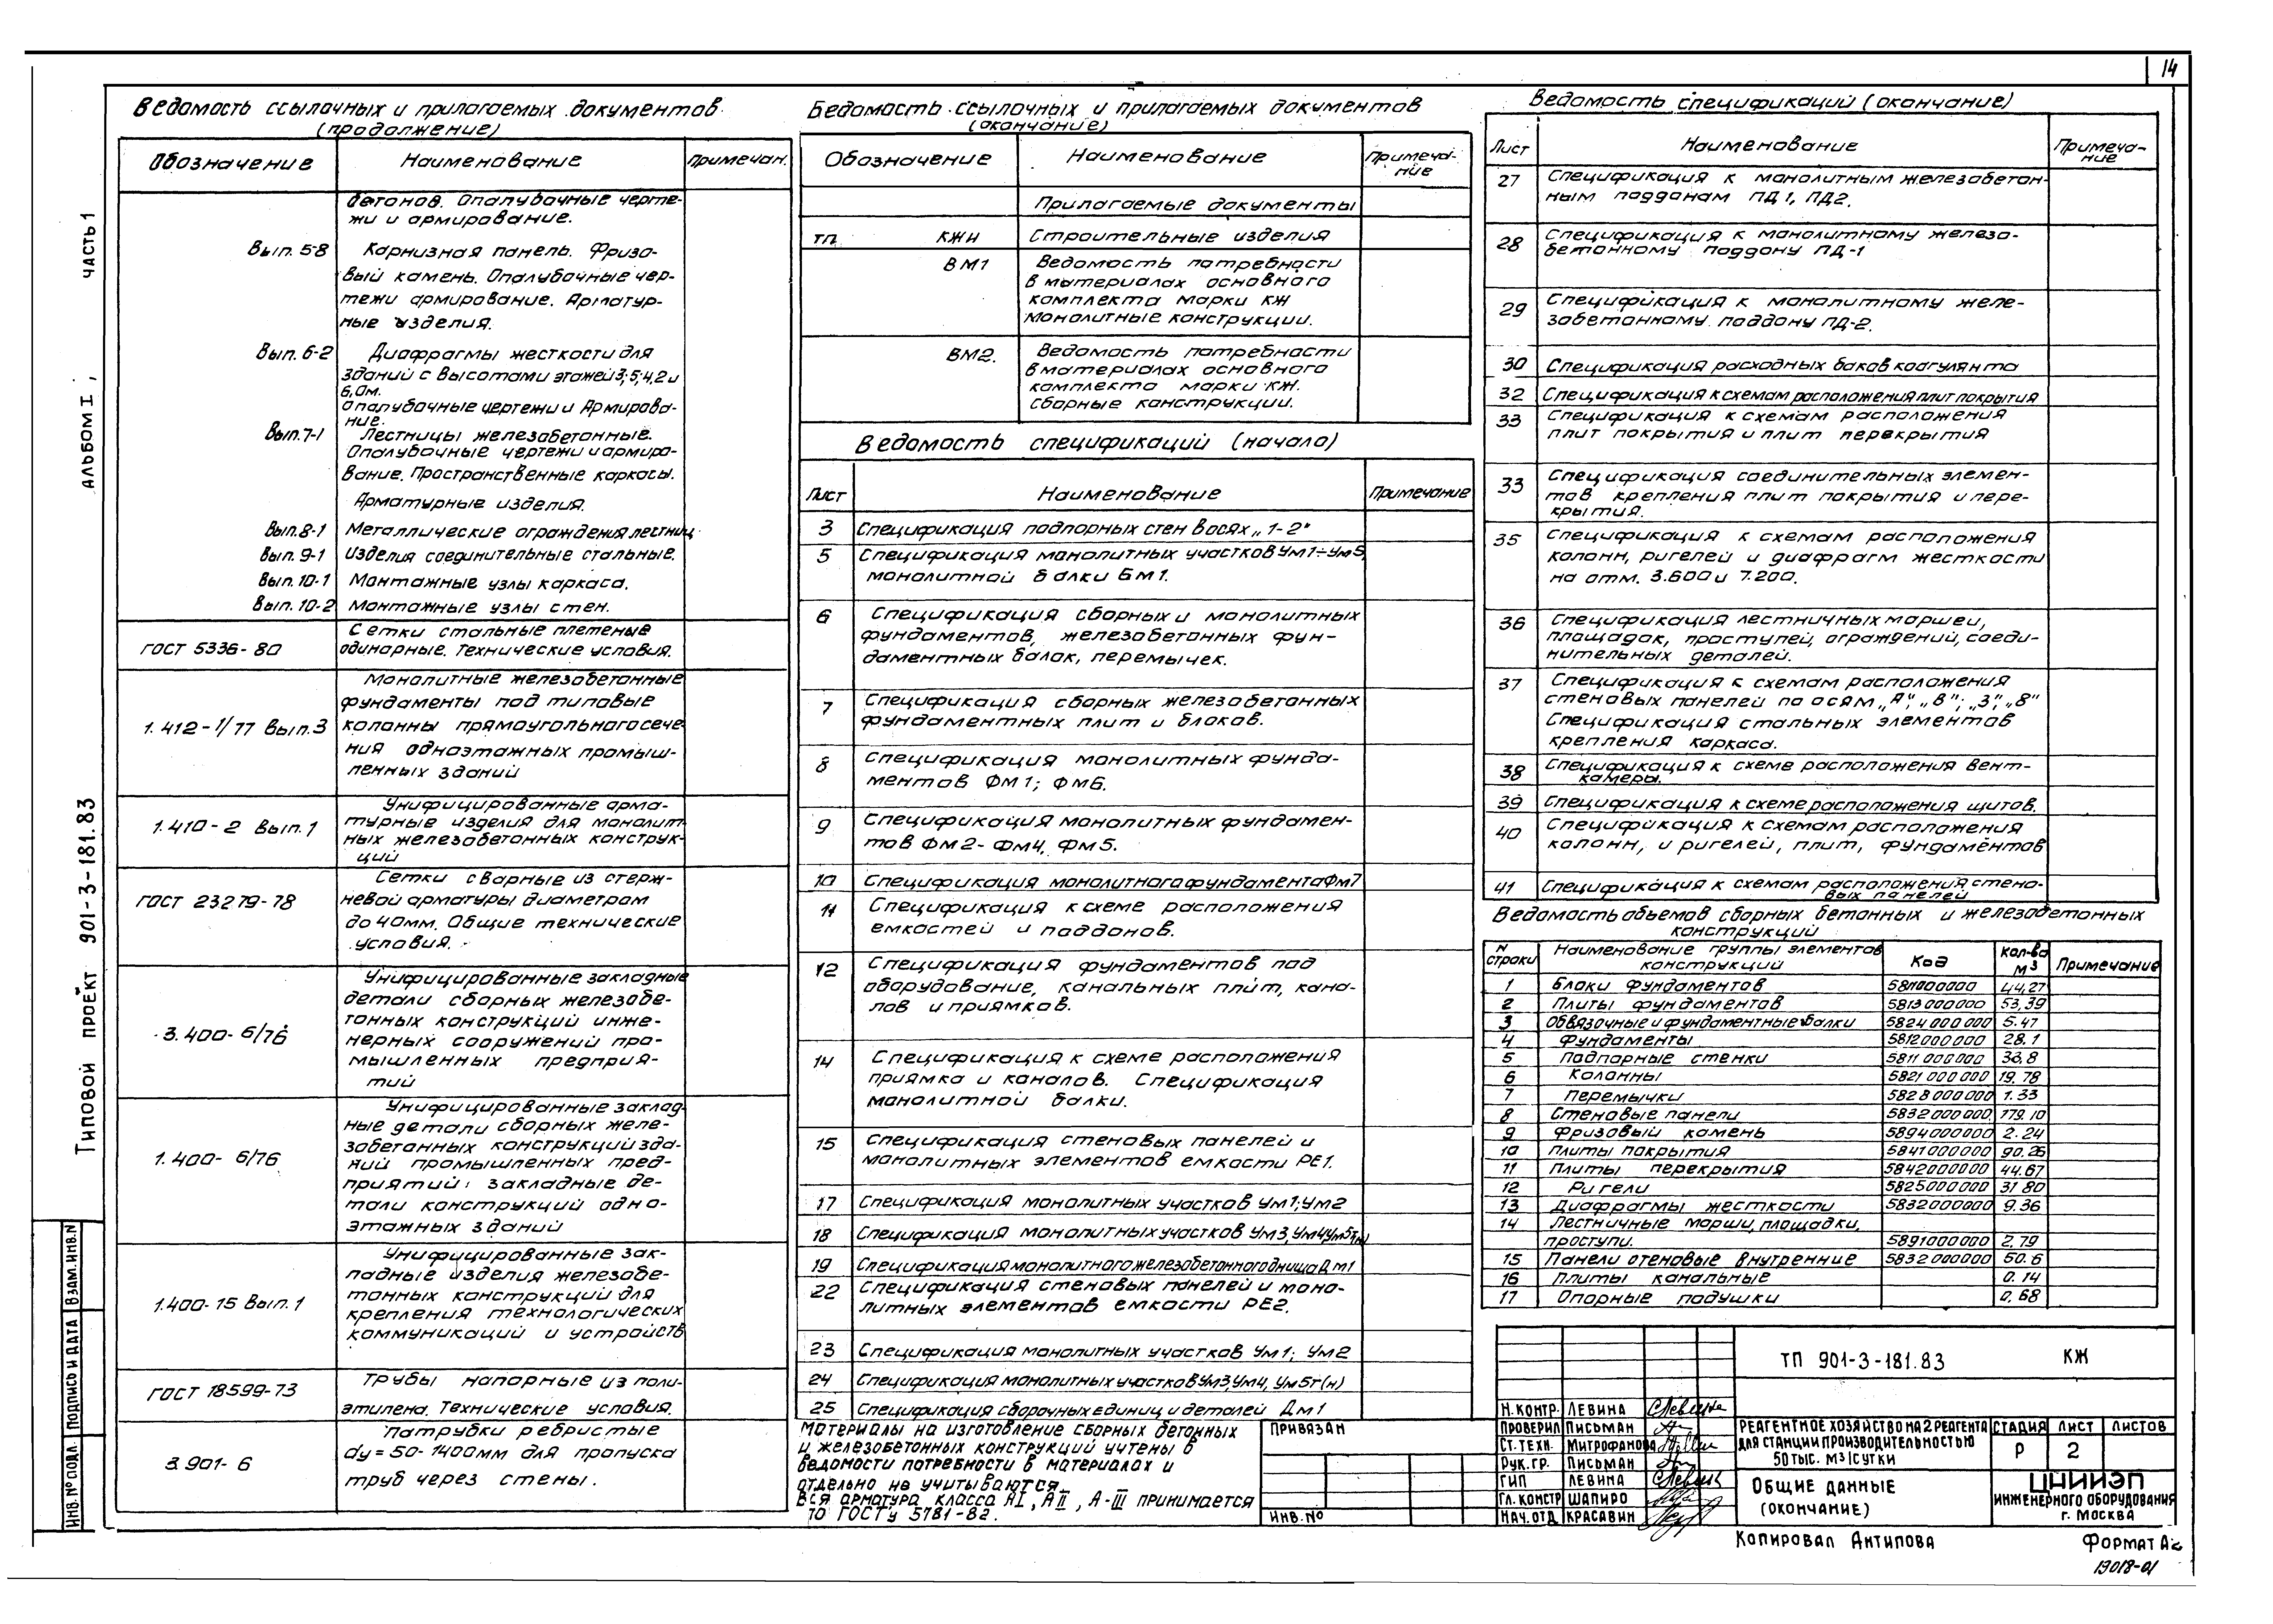 14
Ведомость ссылочных и прилагаемых документов
(продолжение)
Обозначение Наименование Примечан.
бетонов. Опалубочные черте-
жи и армирование.
Вып. 5-8 Карнизная панель. Фризо-
вый камень. Опалубочные чер-
тежи армирование. Арматур-
ные изделия.
Вып. 6-2 Диафрагмы жесткости для
зданий с высотами этажей 3; 5; 4,2 и
6,0м.
Опалубочные чертежи и Армирова-
ние.
Вып. 7-1 Лестницы железобетонные.
Опалубочные чертежи и армиро-
вание. Пространственные каркасы.
Арматурные изделия.
Вып. 8-1 Металлические ограждения лестниц
Вып. 9-1 Изделия соединительные стальные.
Вып. 10-1 Монтажные узлы каркаса.
Вып. 10-2 Монтажные узлы стен.
ГОСТ 5336-80 Сетки стальные плетеные
одинарные. Технические условия.
1.412-1/77 Вып.3 Монолитные железобетонные
фундаменты под типовые
колонны прямоугольного сече-
ния одноэтажных промыш-
ленных зданий
1.410-2 Вып.1 Унифицированные арма-
турные изделия для монолит-
ных железобетонных конструк-
ций
ГОСТ 23279-78 Сетки сварные из стерж-
невой арматуры диаметром
до 40мм. Общие технические
условия.
3.400-6/76 Унифицированные закладные
детали сборных железобе-
тонных конструкций инже-
нерных сооружений про-
мышленных предприя-
тий
1.400-6/76 Унифицированные заклад-
ные детали сборных желе-
зобетонных конструкций зда-
ний промышленных пред-
приятий: закладные де-
тали конструкций одно-
этажных зданий
1.400-15 Вып.1 Унифицированные зак-
ладные изделия железобе-
тонных конструкций для
крепления технологических
коммуникаций и устройств
ГОСТ 18599-73 Трубы напорные из поли-
этилена. Технические условия.
3.901-6 Патрубки ребристые
dу=50-1400мм для пропуска
труб через стены.
Ведомость ссылочных и прилагаемых документов
(окончание)
Обозначение Наименование Примеча-
ние
Прилагаемые документы
ТП КЖИ Строительные изделия
ВМ1 Ведомость потребности
в материалах основного
комплекта марки КЖ
Монолитные конструкции.
ВМ2. Ведомость потребности
в материалах основного
комплекта марки КЖ.
Сборные конструкции.
Ведомость спецификаций (начало)
Лист Наименование Примечание
3 Спецификация подпорных стен в осях „1-2"
5 Спецификация монолитных участков Ум1÷Ум5,
монолитной балки БМ1.
6 Спецификация сборных и монолитных
фундаментов, железобетонных фун-
даментных балок, перемычек.
7 Спецификация сборных железобетонных
фундаментных плит и блоков.
8 Спецификация монолитных фунда-
ментов Фм1; Фм6.
9 Спецификация монолитных фундамен-
тов Фм2-Фм4, Фм5.
10 Спецификация монолитного фундамента Фм7
11 Спецификация к схеме расположения
емкостей и поддонов.
12 Спецификация фундаментов под
оборудование, канальных плит, кана-
лов и приямков.
14 Спецификация к схеме расположения
приямка и каналов. Спецификация
монолитной балки.
15 Спецификация стеновых панелей и
монолитных элементов емкости РЕ1.
17 Спецификация монолитных участков Ум1; Ум2
18 Спецификация монолитных участков Ум3, Ум4, Ум5т(н)
19 Спецификация монолитного железобетонного днища Дм1
22 Спецификация стеновых панелей и моно-
литных элементов емкости РЕ2.
23 Спецификация монолитных участков Ум1; Ум2
24 Спецификация монолитных участков Ум3, Ум4, Ум5т(н)
25 Спецификация сборочных единиц и деталей Дм1
Материалы на изготовление сборных бетонных
и железобетонных конструкций учтены в
ведомости потребности в материалах и
отдельно не учитываются
Вся арматура класса АI, АII, А-III принимается
по ГОСТу 5781-82.
Привязан
Инв.№
Ведомость спецификаций (окончание)
Лист Наименование Примеча-
ние
27 Спецификация к монолитным железобетон-
ным поддонам ПД1, ПД2.
28 Спецификация к монолитному железо-
бетонному поддону ПД-1
29 Спецификация к монолитному желе-
зобетонному поддону ПД-2.
30 Спецификация расходных баков коагулянта
32 Спецификация к схемам расположения плит покрытия
33 Спецификация к схемам расположения
плит покрытия и плит перекрытия
33 Спецификация соединительных элемен-
тов крепления плит покрытия и пере-
крытия.
35 Спецификация к схемам расположения
колонн, ригелей и диафрагм жесткости
на отм. 3.600 и 7.200.
36 Спецификация лестничных маршей,
площадок, проступей, ограждений, соеди-
нительных деталей.
37 Спецификация к схемам расположения
стеновых панелей по осям „А", „В"; „3", „8"
Спецификация стальных элементов
крепления каркаса.
38 Спецификация к схеме расположения вент-
камеры.
39 Спецификация к схеме расположения щитов.
40 Спецификация к схемам расположения
колонн, и ригелей, плит, фундаментов
41 Спецификация к схемам расположения стено-
вых панелей
Ведомость объемов сборных бетонных и железобетонных
конструкций
N строки Наименование группы элементов конструкций Код Кол-во м3 Примечание
1 Блоки фундаментов 5811000000 44,27
2 Плиты фундаментов 5813000000 53,39
3 Обвязочные и фундаментные балки 5824000000 5.47
4 Фундаменты 5812000000 28.1
5 Подпорные стенки 5811000000 33,8
6 Колонны 5821000000 19.78
7 Перемычки 5828000000 1.33
8 Стеновые панели 5832000000 179.10
9 Фризовый камень 5894000000 2.24
10 Плиты покрытия 5841000000 90.26
11 Плиты перекрытия 5842000000 44.67
12 Ригели 5825000000 31 80
13 Диафрагмы жесткости 5832000000 9.36
14 Лестничные марши, площадки,
проступи. 5891000000 2,79
15 Панели стеновые внутренние 5832000000 50.6
16 Плиты канальные 0.14
17 Опорные подушки 0,68
ТП 901-3-181.83 КЖ
Н.контр. Левина
Проверил Письман
Ст.техн. Митрофанова
Рук.гр. Письман
ГИП Левина
Гл.констр Шапиро
Нач.отд Красавин
Реагентное хозяйство на 2 реагента
для станции производительностью
50 тыс. м3/сутки
Стадия Лист Листов
Р 2
Общие данные
(окончание)
ЦНИИЭП
инженерного оборудования
г. Москва
Копировал Антипова
Формат А2
19018-01
Типовой проект 901-3-181.83 Альбом I, часть 1
Инв.№ подл. Подпись и дата Взам.инв.N